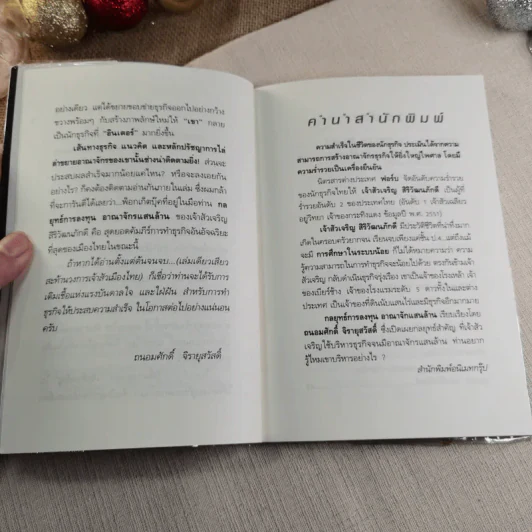 อย่างเดียว แต่ได้ขยายขอบข่ายธุรกิจออกไปอย่างกว้าง
ขวางพร้อมๆ กับสร้างภาพลักษณ์ใหม่ให้ "เขา" กลาย
เป็นนักธุรกิจที่ "อินเตอร์" มากยิ่งขึ้น
เส้นทางธุรกิจ แนวคิด และหลักปรัชญาการไล่
ล่าขยายอาณาจักรของเขานั้นช่างน่าติดตามยิ่ง! ส่วนจะ
ประสบผลสำเร็จมากน้อยแค่ไหน? หรือจะลงเอยกัน
อย่างไร? ก็คงต้องติดตามอ่านกันภายในเล่ม ซึ่งผมกล้า
ที่จะการันตีได้เลยว่า...พ็อกเก็ตบุ๊คที่อยู่ในมือท่าน กล
ยุทธ์การลงทุน อาณาจักรแสนล้าน ของเจ้าสัวเจริญ
สิริวัฒนภักดี คือ สุดยอดคัมภีร์การทำธุรกิจอันอัจฉริยะ
ที่สุดของเมืองไทยในขณะนี้
ถ้าหากได้อ่านตั้งแต่ต้นจนจบ...(เล่มเดียวเสียว
สะท้านวงการเจ้าสัวเมืองไทย) ก็เชื่อว่าท่านจะได้รับการ
เติมเชื้อแห่งแรงบันดาลใจ และไฟฝัน สำหรับการทำ
ธุรกิจให้ประสบความสำเร็จ ในโอกาสต่อไปอย่างแน่นอน
ครับ
ถนอมศักดิ์ จิรายุสวัสดิ์
คำนำสำนักพิมพ์
ความสำเร็จในชีวิตของนักธุรกิจ ประเมินได้จากความ
สามารถการสร้างอาณาจักรธุรกิจให้ยิ่งใหญ่ไพศาล โดยมี
ความร่ำรวยเป็นเครื่องยืนยัน
นิตรสารต่างประเทศ ฟอร์บ จัดอันดับความร่ำรวย
ของนักธุรกิจไทยให้ เจ้าสัวเจริญ สิริวัฒนภักดี เป็นผู้ที่
ร่ำรวยอันดับ 2 ของประเทศไทย (อันดับ 1 เจ้าสัวเฉลียว
อยู่วิทยา เจ้าของกระทิงแดง ข้อมูลปี พ.ศ. 2551)
เจ้าสัวเจริญ สิริวัฒนภักดี มีประวัติชีวิตที่น่าทึ่งมาก
เกิดในครอบครัวยากจน เรียนจบเพียงแค่ชั้น ป.4...แต่ถึงแม้
จะมี การศึกษาในระบบน้อย ก็ไม่ได้หมายความว่า ความ
รู้ความสามารถในการทำธุรกิจจะน้อยไปด้วย ตรงกันข้ามเจ้าสัว
เจริญ กลับดำเนินธุรกิจรุ่งเรือง เขาเป็นเจ้าของโรงเหล้า เจ้า
ของเบียร์ช้าง เจ้าของโรงแรมระดับ 5 ดาวทั้งในและต่าง
ประเทศ เป็นเจ้าของที่ดินนับแสนไร่และมีธุรกิจอีกมากมาย
กลยุทธ์การลงทุน อาณาจักแสนล้าน เรียบเรียงโดย
ถนอมศักดิ์ จิรายุสวัสดิ์ ซึ่งเปิดเผยกลยุทธ์สำคัญ ที่เจ้าสัว
เจริญใช้บริหารธุรกิจจนมีอาณาจักรแสนล้าน ท่านอยาก
รู้ไหมเขาบริหารอย่างไร ?
สำนักพิมพ์อนิเมทกรุ๊ป